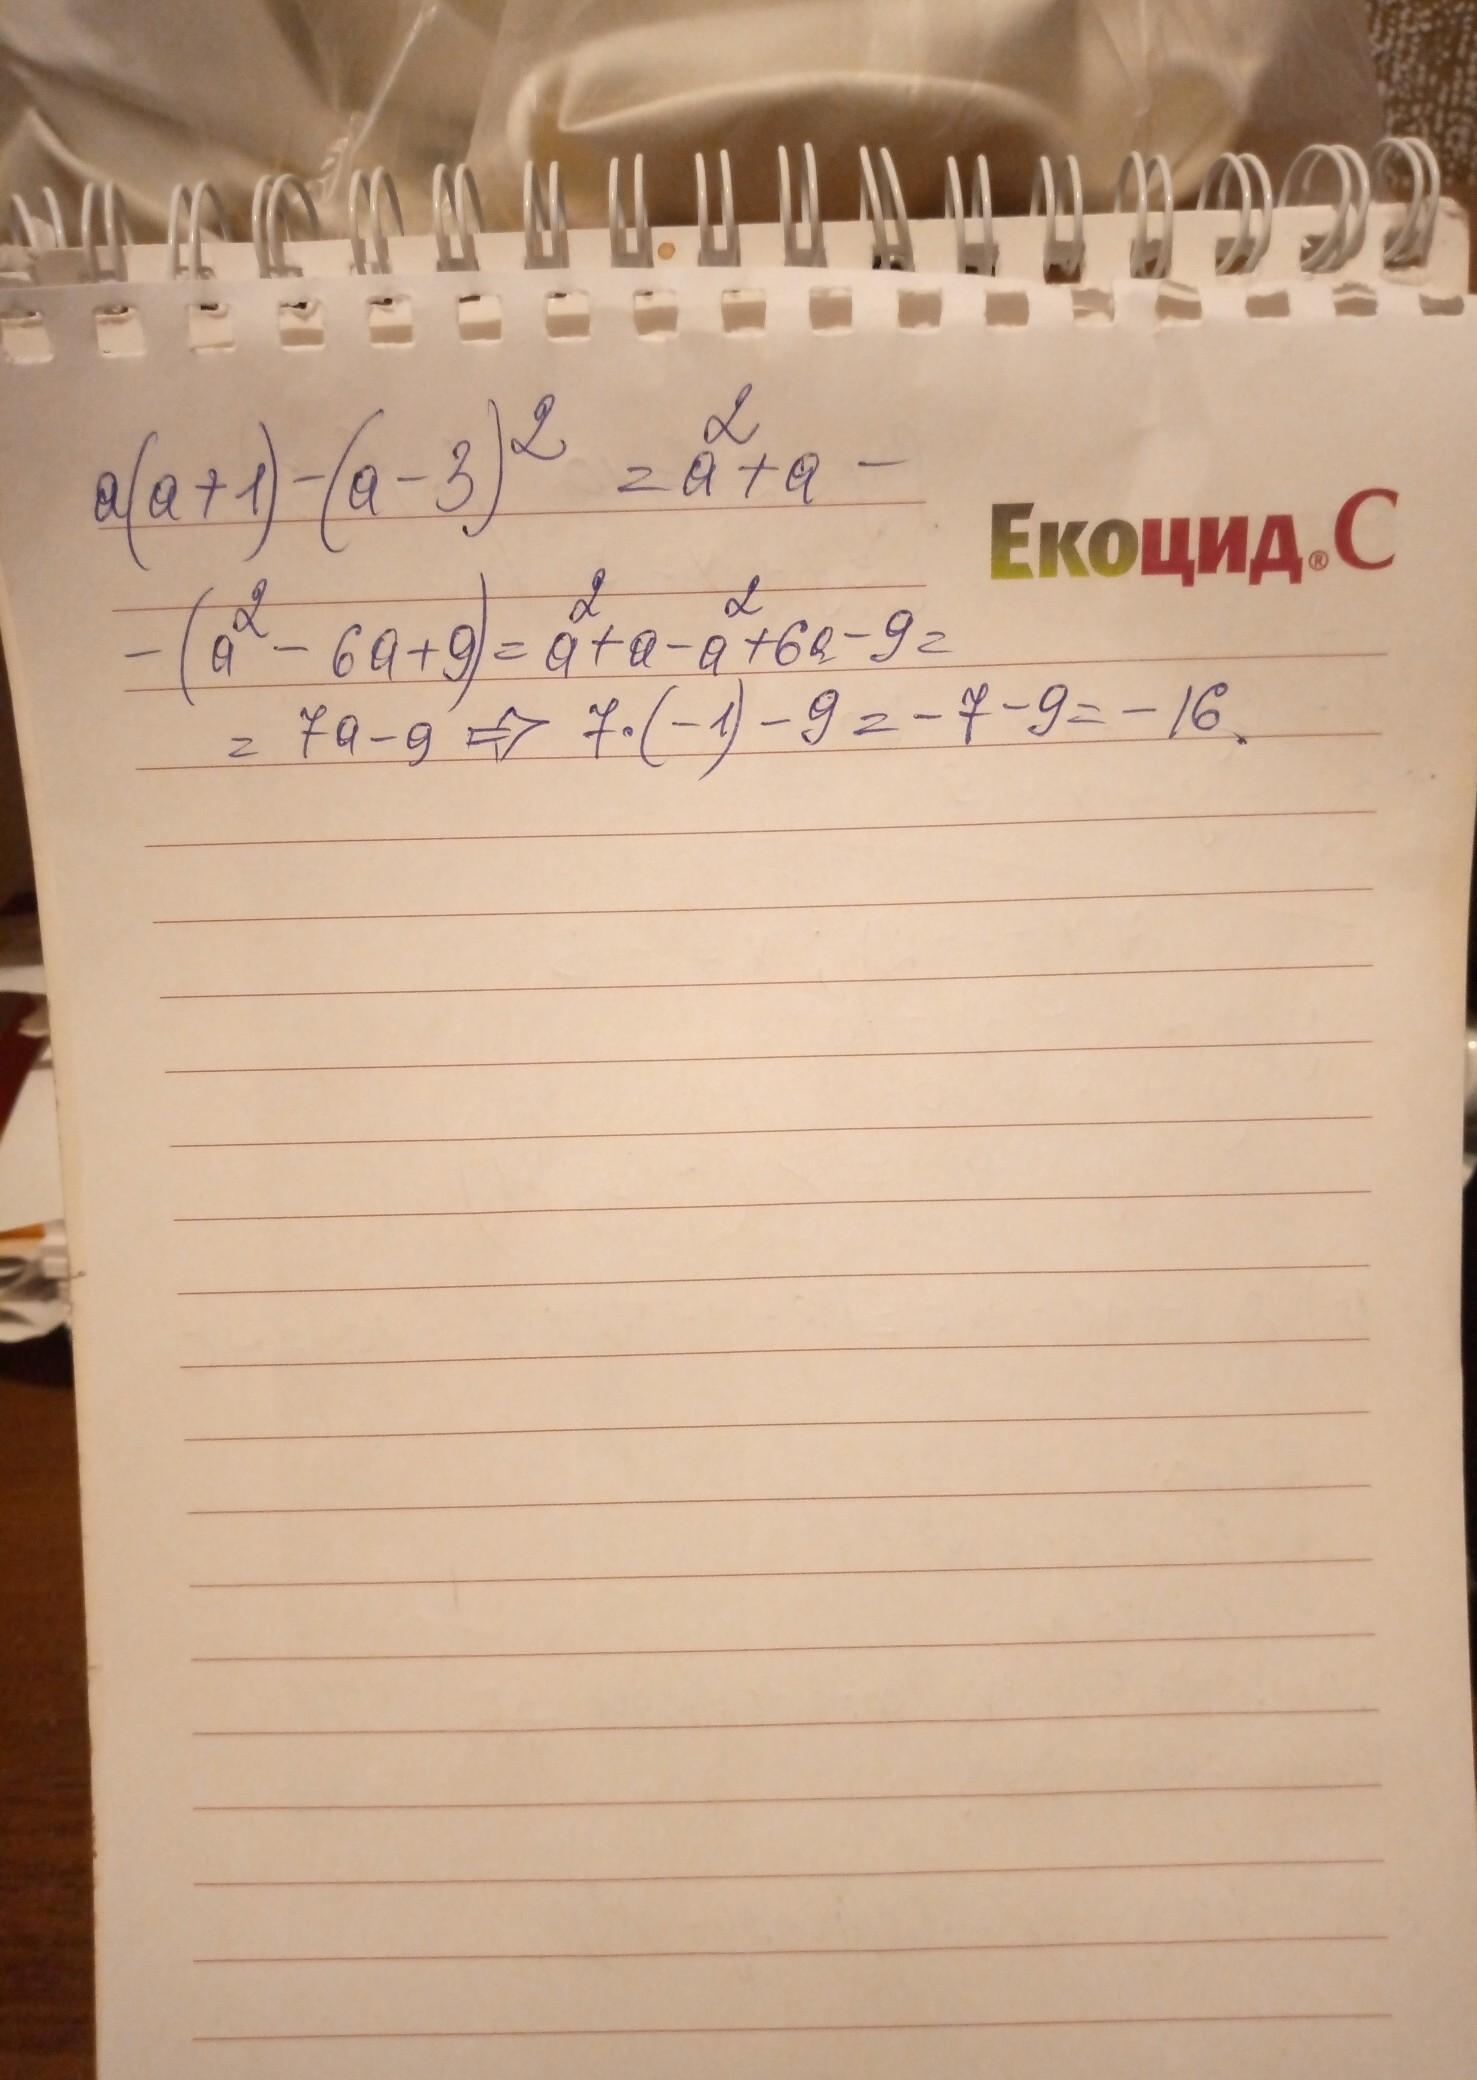 a(a+1)-(a-3)² = a²+a -
Екоцид® С
-(a²-6a+9)=a²+a-a²+6a-9=
= 7a-9 ⇒ 7·(-1)-9=-7-9=-16.